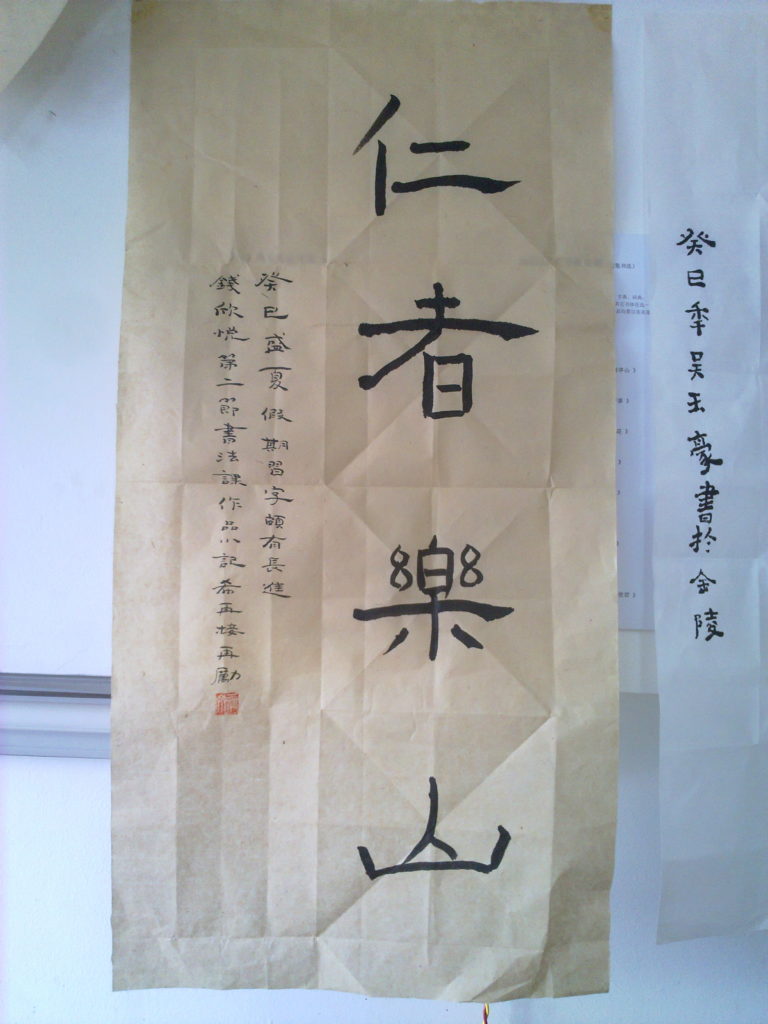 癸巳季吴玉豪書於金陵
仁者樂山
癸巳盛夏假期習字頗有長進
錢欣悅第二節書法課作品小記希再接再勵